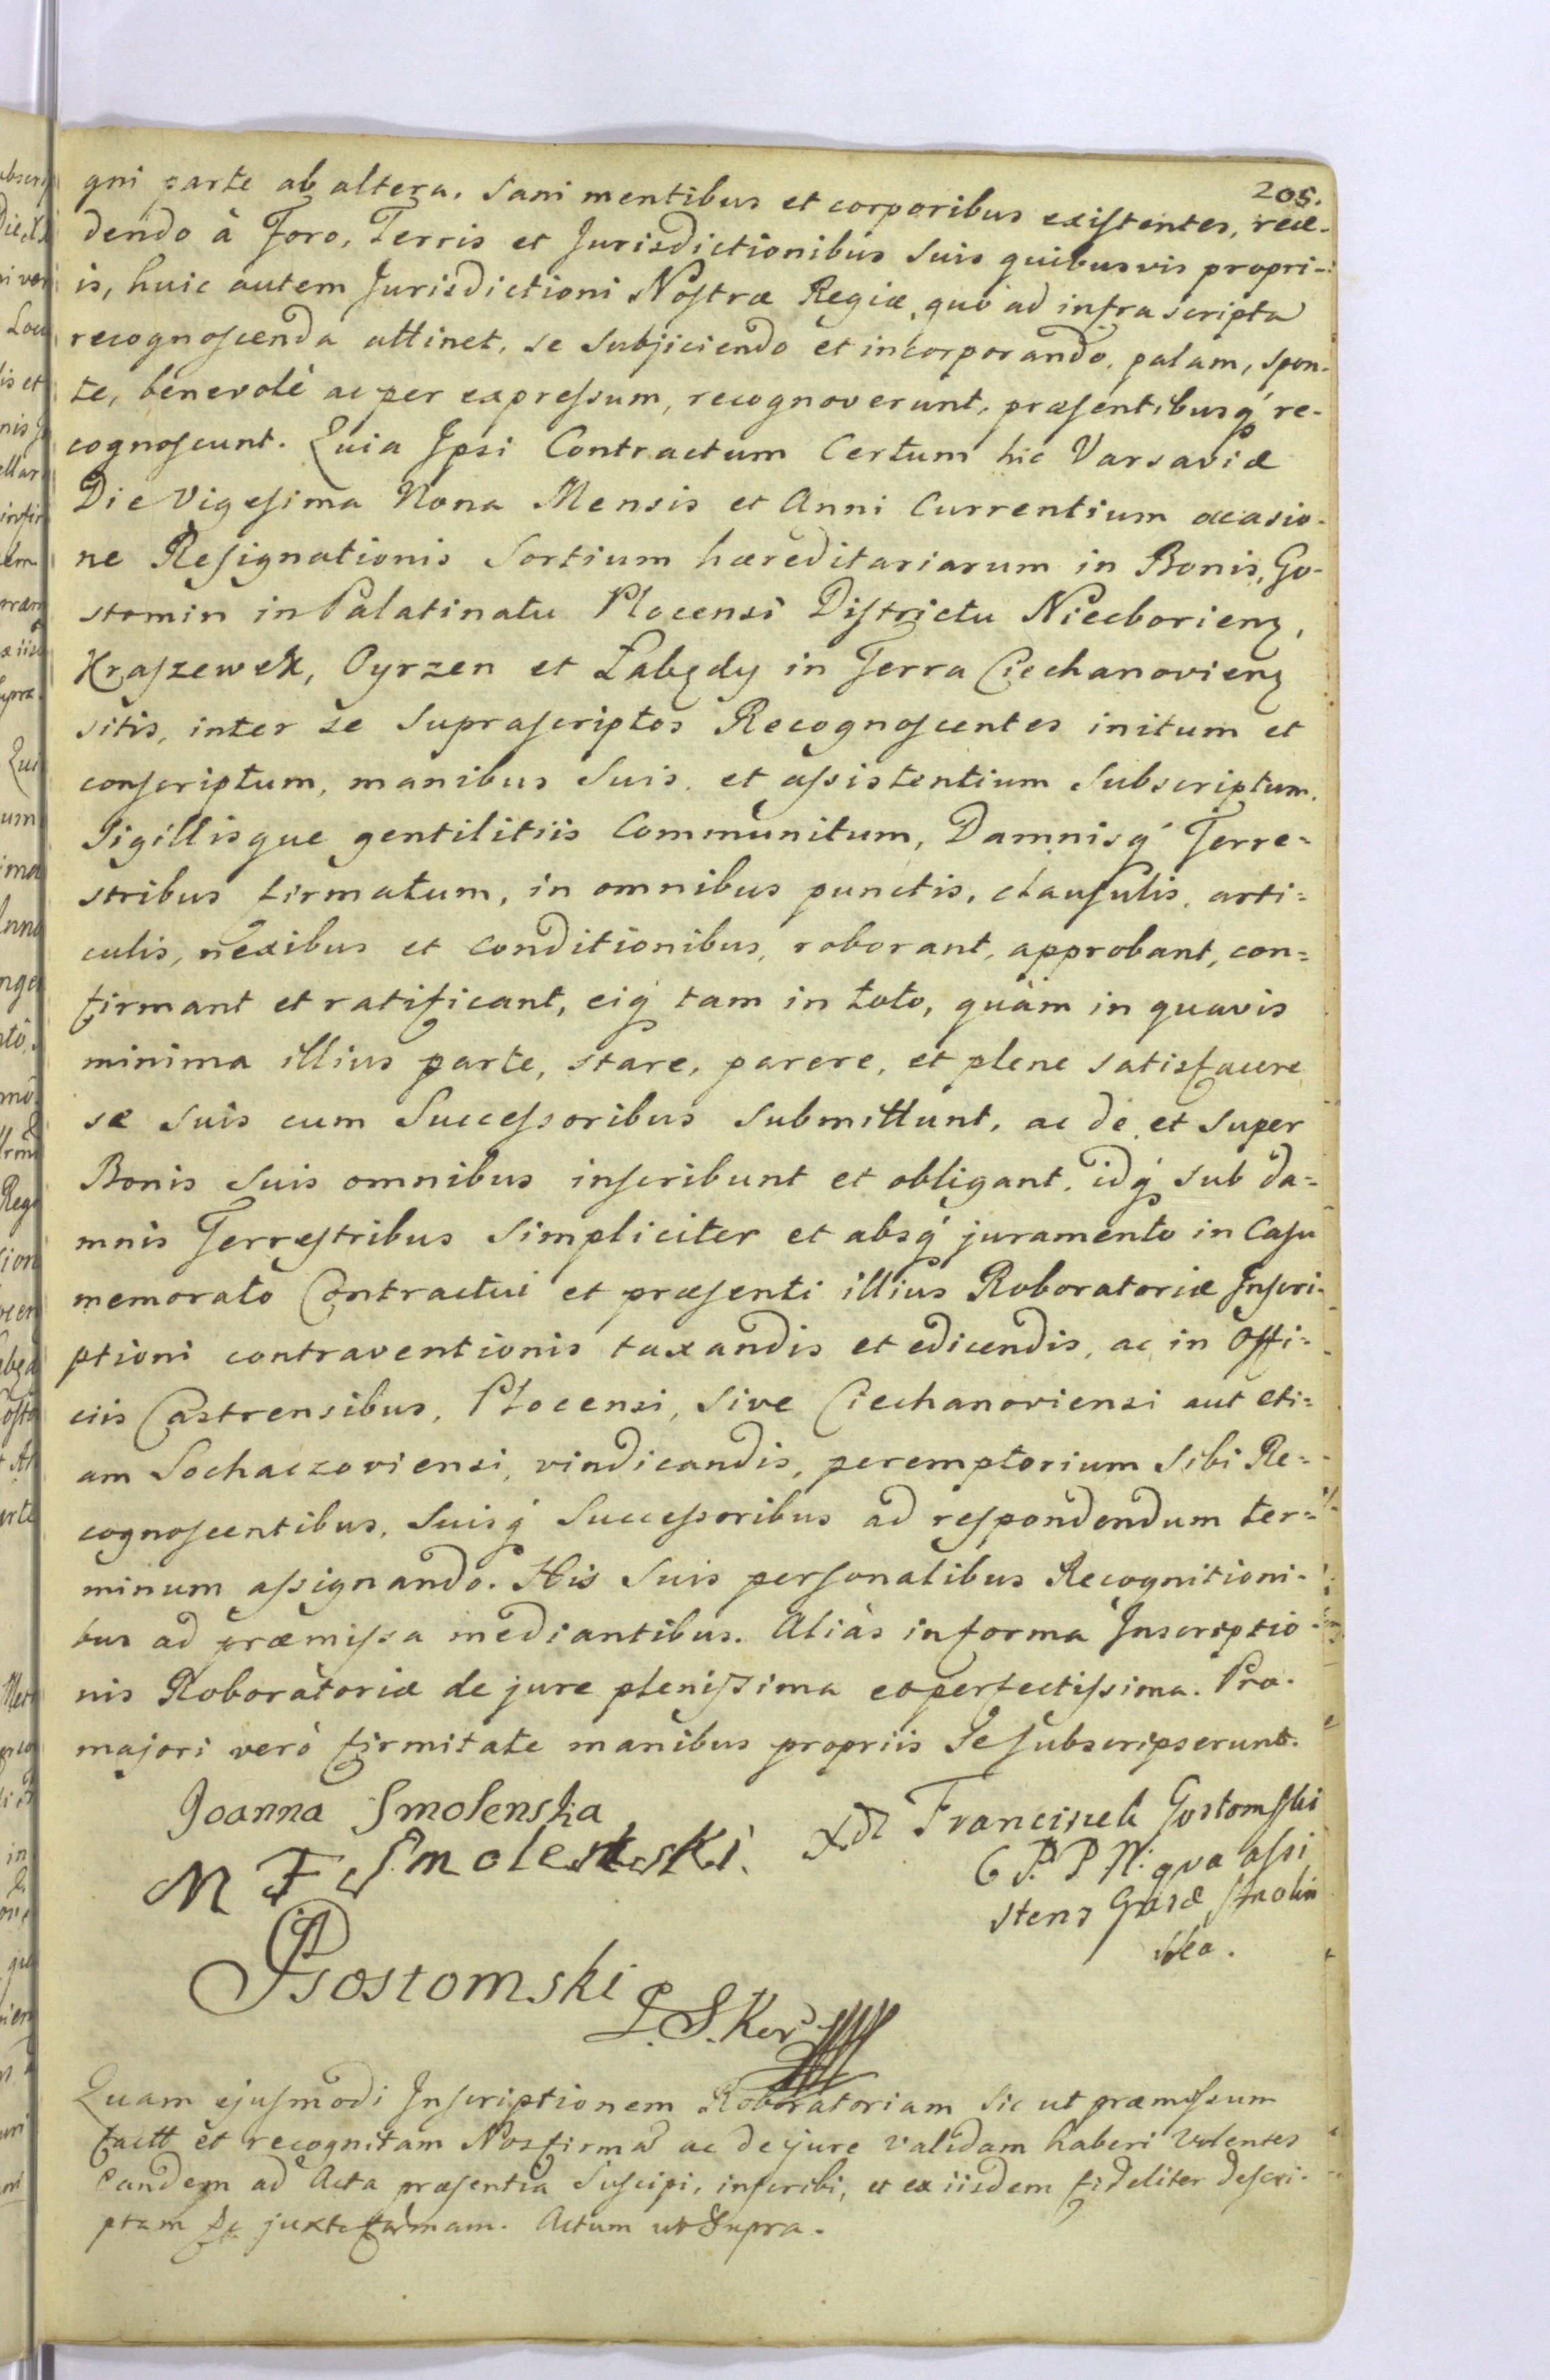 205.
gni parte ab altera. Sani mentibus et corporibus existentes, rece-
dendo à Foro, Terris et Jurisdictionibus Suis quibusvis propri-
is, huic autem Jurisdictioni Nostræ Regiæ, quò ad infra scripta
recognoscenda attinet, se Subjiciendo et incorporando, palam, spon-
te, benevolè ac per expressum, recognoverunt, præsentibusq́ re-
cognoscunt. Quia Ipsi Contractum Certum hic Varsaviæ
Die Vigesima Nona Mensis et Anni Currentium occasio-
ne Resignationis Sortium hæreditariarum in Bonis, Go-
stomin in Palatinatu Plocensi Districtu Niecborienȝ,
Kraszewek, Pyrzen et Łabędy in Terra Ciechanovienȝ
sitis, inter se Suprascriptos Recognoscentes initum et
conscriptum, manibus Suis, et assistentium Subscriptum,
Sigillisque gentilitiis Communitum, Damnisq́ Terre=
stribus firmatum, in omnibus punctis, clausulis, arti=
culis, nexibus et Conditionibus, roborant, approbant, con=
firmant et ratificant, eiq́ tam in toto, quàm in quavis
minima illius parte, stare, parere, et plene satisfacere
se suis cum Successoribus Submittunt, ac de et super
Bonis Suis omnibus inscribunt et obligant, idq́ sub da=
mnis Terrestribus Simpliciter et absq́ juramento in Casu
memorato Contractui et præsenti illius Roboratoriæ Inscri-
ptioni contraventionis taxandis et edicendis, ac in Offi=
ciis Castrensibus, Plocensi, Sive Ciechanoviensi aut eti=
am Sochaczoviensi, vindicandis, peremptorium Sibi Re=
cognoscentibus, Suisq́ Successoribus ad respondendum ter=
minum assignando. His Suis personalibus Recognitioni-
bus ad præmissa mediantibus. Aliàs in forma Inscriptio-
nis Roboratoriæ de jure plenissima et perfectissima. Pro
majori verò firmitate manibus propriis Se Subscripserunt.
Joanna Smolenska
M F Smolenski.
Francisuek Gostomski
C P. P N: qva assi
stens Gnsæ Smolin
ska.
Gostomski
P. S. Ker
Quam ejusmodi Inscriptionem Roboratoriam Sic ut præmissum
factt et recognitam Nos firmã ac de jure validam haberi Volentes
Eandem ad Acta præsentia Suscipi, inscribi, et ex iisdem fideliter descri-
ptam juxta formam. Actum ut Supra.